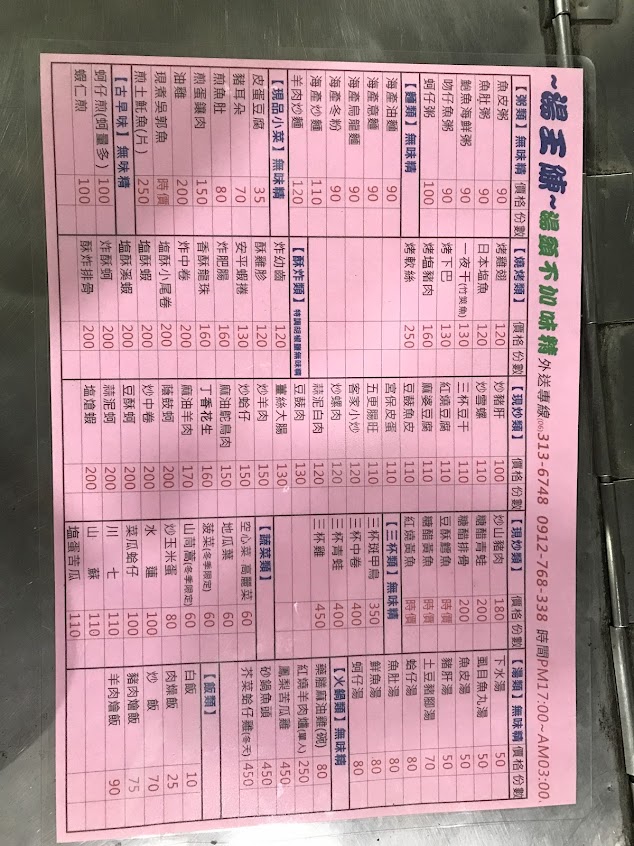 ~湯王鋪~湯頭不加味精 外送專線(06)313-6748 0912-768-338 時間PM17:00~AM03:00.
【粥類】無味精 價格 份數
魚皮粥 90
魚肚粥 90
鮑魚海鮮粥 90
吻仔魚粥 90
蚵仔粥 100
【麵類】無味精
海產油麵 90
海產意麵 90
海產烏龍麵 90
海產冬粉 90
海產炒麵 110
羊肉炒麵 120
【現品小菜】無味精
皮蛋豆腐 35
豬耳朵 70
煎魚肚 80
煎蛋鑲肉 150
油雞 200
現煮吳郭魚 時價
煎土魠魚(片) 250
【古早味】無味精
蚵仔煎(蚵量多) 100
蝦仁煎 100
【燒烤類】 價格 份數
烤雞翅 120
日本塩魚 120
一夜干(竹筴魚) 130
烤下巴 130
烤塩豬肉 160
烤軟絲 250
【酥炸類】特調胡椒鹽無味精
炸幼齒 120
酥雞胗 120
安平蝦捲 130
炸肥腸 160
香酥龍珠 160
炸中卷 200
塩酥小尾卷 200
塩酥蝦 200
塩酥溪蝦 200
炸酥蚵 200
酥炸排骨 200
【現炒類】 價格 份數
炒豬肝 100
炒雪螺 110
三杯豆干 110
紅燒豆腐 110
麻婆豆腐 110
豆鼓魚皮 110
宮保皮蛋 110
五更腸旺 110
客家小炒 120
炒螺肉 120
蒜泥白肉 120
豆鼓肉 130
薑絲大腸 130
炒羊肉 150
炒蛤仔 150
麻油鴕鳥肉 150
丁香花生 160
麻油羊肉 170
蔭鼓蚵 200
炒中卷 200
豆酥蚵 200
蒜泥蚵 200
塩熗蝦 200
【現炒類】 價格 份數
炒山豬肉 180
糖醋青蛙 200
糖醋排骨 200
豆酥鱈魚 時價
糖醋黃魚 時價
紅燒黃魚 時價
【三杯類】無味精
三杯斑甲鳥 350
三杯中卷 400
三杯青蛙 400
三杯雞 450
【蔬菜類】
空心菜 高麗菜 60
地瓜葉 60
菠菜(冬季限定) 60
山茼蒿(冬季限定) 60
炒玉米蛋 80
水蓮 100
菜瓜蛤仔 100
川七 110
山蘇 110
塩蛋苦瓜 110
【湯類】無味精 價格 份數
下水湯 50
虱目魚丸湯 50
魚皮湯 50
豬肝湯 50
土豆豬腳湯 70
蛤仔湯 80
魚肚湯 80
鮮魚湯 80
蚵仔湯 80
【火鍋類】無味精
藥膳麻油雞(碗) 80
紅燒羊肉爐(單人) 250
鳳梨苦瓜雞 450
砂鍋魚頭 450
芥菜蛤仔雞(冬天) 450
【飯類】
白飯 10
肉燥飯 25
炒飯 70
豬肉燴飯 75
羊肉燴飯 90